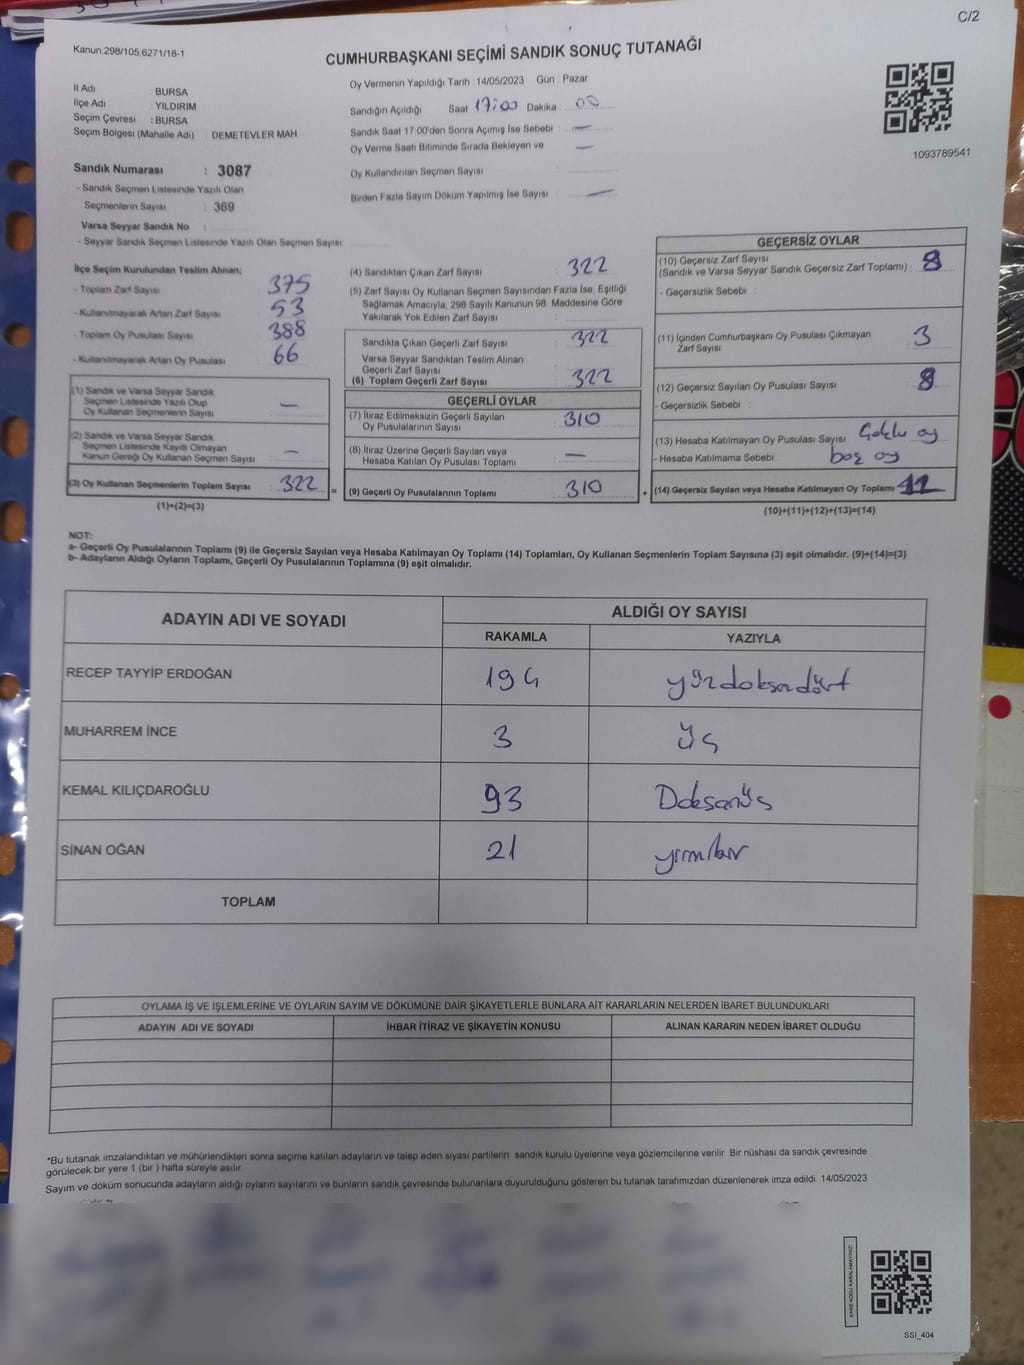 C/2
Kanun;298/105,6271/18-1
CUMHURBAŞKANI SEÇİMİ SANDIK SONUÇ TUTANAĞI
İl Adı BURSA
İlçe Adı : YILDIRIM
Seçim Çevresi : BURSA
Seçim Bölgesi (Mahalle Adı) : DEMETEVLER MAH.
Oy Vermenin Yapıldığı Tarih : 14/05/2023 Gün : Pazar
Sandığın Açıldığı Saat 17:00 Dakika : 00
Sandık Saat 17:00'den Sonra Açımış İse Sebebi : —
Oy Verme Saati Bitiminde Sırada Bekleyen ve —
Oy Kullandırılan Seçmen Sayısı :
Birden Fazla Sayım Döküm Yapılmış İse Sayısı : —
1093789541
Sandık Numarası : 3087
- Sandık Seçmen Listesinde Yazılı Olan
Seçmenlerin Sayısı : 369
Varsa Seyyar Sandık No :
- Seyyar Sandık Seçmen Listesinde Yazılı Olan Seçmen Sayısı:
İlçe Seçim Kurulundan Teslim Alınan;
- Toplam Zarf Sayısı : 375
- Kullanılmayarak Artan Zarf Sayısı : 53
- Toplam Oy Pusulası Sayısı : 388
- Kullanılmayarak Artan Oy Pusulası : 66
(1) Sandık ve Varsa Seyyar Sandık
Seçmen Listesinde Yazılı Olup
Oy Kullanan Seçmenlerin Sayısı : —
(2) Sandık ve Varsa Seyyar Sandık
Seçmen Listesinde Kayıtlı Olmayan
Kanun Gereği Oy Kullanan Seçmen Sayısı : —
(3) Oy Kullanan Seçmenlerin Toplam Sayısı : 322 =
(1)+(2)=(3)
(4) Sandıktan Çıkan Zarf Sayısı : 322
(5) Zarf Sayısı Oy Kullanan Seçmen Sayısından Fazla İse, Eşitliği
Sağlamak Amacıyla, 298 Sayılı Kanunun 98. Maddesine Göre
Yakılarak Yok Edilen Zarf Sayısı :
Sandıkta Çıkan Geçerli Zarf Sayısı : 322
Varsa Seyyar Sandıktan Teslim Alınan
Geçerli Zarf Sayısı :
(6) Toplam Geçerli Zarf Sayısı : 322
GEÇERLİ OYLAR
(7) İtiraz Edilmeksizin Geçerli Sayılan
Oy Pusulalarının Sayısı : 310
(8) İtiraz Üzerine Geçerli Sayılan veya
Hesaba Katılan Oy Pusulası Toplamı : —
(9) Geçerli Oy Pusulalarının Toplamı : 310 +
GEÇERSİZ OYLAR
(10) Geçersiz Zarf Sayısı
(Sandık ve Varsa Seyyar Sandık Geçersiz Zarf Toplamı) : 8
- Geçersizlik Sebebi :
(11) İçinden Cumhurbaşkanı Oy Pusulası Çıkmayan
Zarf Sayısı : 3
(12) Geçersiz Sayılan Oy Pusulası Sayısı : 8
- Geçersizlik Sebebi :
(13) Hesaba Katılmayan Oy Pusulası Sayısı oy
- Hesaba Katılmama Sebebi : boş oy
(14) Geçersiz Sayılan veya Hesaba Katılmayan Oy Toplamı
(10)+(11)+(12)+(13)=(14)
NOT:
a- Geçerli Oy Pusulalarının Toplamı (9) ile Geçersiz Sayılan veya Hesaba Katılmayan Oy Toplamı (14) Toplamları, Oy Kullanan Seçmenlerin Toplam Sayısına (3) eşit olmalıdır. (9)+(14)=(3)
b- Adayların Aldığı Oyların Toplamı, Geçerli Oy Pusulalarının Toplamına (9) eşit olmalıdır.
ADAYIN ADI VE SOYADI ALDIĞI OY SAYISI
RAKAMLA YAZIYLA
RECEP TAYYİP ERDOĞAN 194 yüzdoksandört
MUHARREM İNCE 3 Üç
KEMAL KILIÇDAROĞLU 93 Doksanüç
SİNAN OĞAN 21 yirmibir
TOPLAM
OYLAMA İŞ VE İŞLEMLERİNE VE OYLARIN SAYIM VE DÖKÜMÜNE DAİR ŞİKAYETLERLE BUNLARA AİT KARARLARIN NELERDEN İBARET BULUNDUKLARI
ADAYIN ADI VE SOYADI İHBAR İTİRAZ VE ŞİKAYETİN KONUSU ALINAN KARARIN NEDEN İBARET OLDUĞU
*Bu tutanak imzalandıktan ve mühürlendikten sonra seçime katılan adayların ve talep eden siyasi partilerin sandık kurulu üyelerine veya gözlemcilerine verilir .Bir nüshası da sandık çevresinde
görülecek bir yere 1 (bir ) hafta süreyle asılır.
Sayım ve döküm sonucunda adayların aldığı oyların sayılarını ve bunların sandık çevresinde bulunanlara duyurulduğunu gösteren bu tutanak tarafımızdan düzenlenerek imza edildi. 14/05/2023
KARE KODU KARALAMAYINIZ!
SSI_404